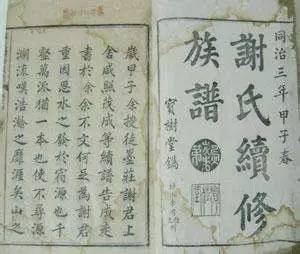 同治三年甲子春
謝氏續修
族譜
寶樹堂鐫
歲甲子余授徒墨莊謝君上
舍咸熙茂成等續譜告成來
書於余余不文何足為謝君
重因思水之發於宿源也千
壑萬派猶一本也使不尋源
瀾流嘆浩瀚之靡涯矣山之